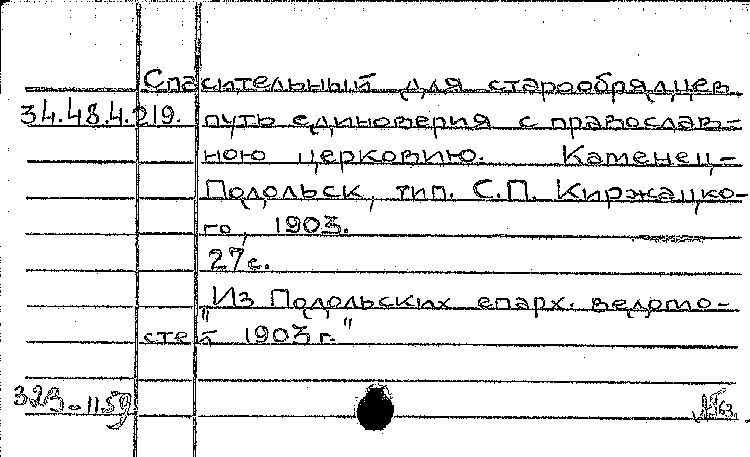 Спасительный для старообрядцев
34.48.4.219. путь единоверия с православ-
ною церковию. Каменец-
Подольск, тип. С.П. Киржацко-
го, 1903.
27с.
"Из Подольских епарх. ведомо-
стей 1903 г."
323-1159